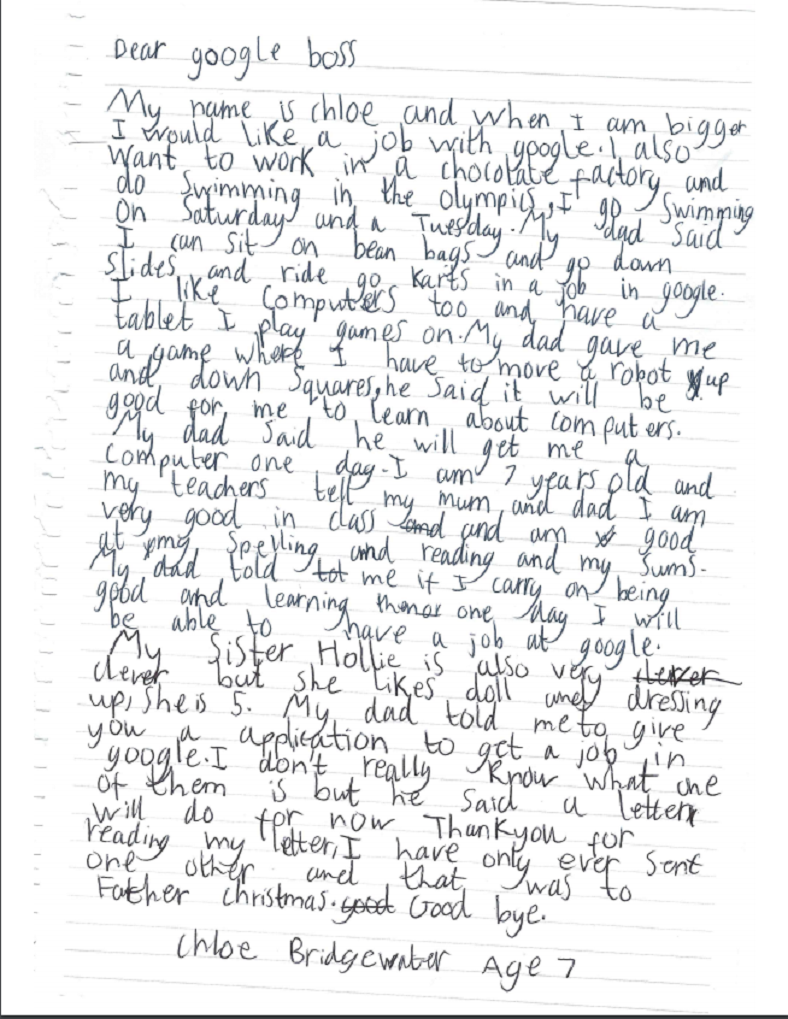 Dear google boss
My name is chloe and when I am bigger
I would like a job with google. I also
want to work in a chocolate factory and
do Swimming in the olympics, I go Swimming
On Saturday and a Tuesday. My dad Said
I can sit on bean bags and go down
Slides and ride go karts in a job in google.
I like Computers too and have a
tablet I play games on. My dad gave me
a game where I have to move a robot up
and down Squares, he Said it will be
good for me to learn about computers.
My dad Said he will get me a
Computer one day. I am 7 years old and
my teachers tell my mum and dad I am
very good in class and and am good
at my Spelling and reading and my Sums.
My dad told tot me if I carry on being
good and learning one day I will
be able to have a job at google.
My Sister Hollie is also very
clever but she likes doll and dressing
up, She is 5. My dad told me to give
you a application to get a job in
google. I don't really Know what one
of them is but he Said a letter
will do for now Thankyou for
reading my letter, I have only ever Sent
one other and that was to
Father christmas. good Good bye.
Chloe Bridgewater Age 7